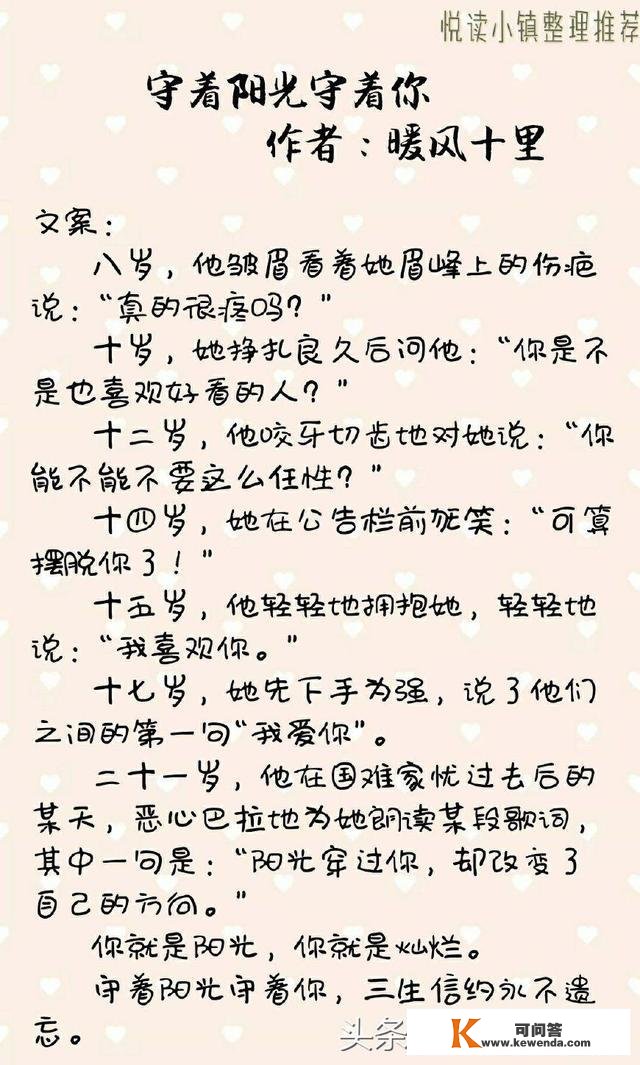 悦读小镇整理推荐
守着阳光守着你
作者：暖风十里
文案：
八岁，他皱眉看着她眉峰上的伤疤
说：“真的很疼吗？”
十岁，她挣扎良久后问他：“你是不
是也喜欢好看的人？”
十二岁，他咬牙切齿地对她说：“你
能不能不要这么任性？”
十四岁，她在公告栏前死笑：“可算
摆脱你了！”
十五岁，他轻轻地拥抱她，轻轻地
说：“我喜欢你。”
十七岁，她先下手为强，说了他们
之间的第一句“我爱你”。
二十一岁，他在国难家忧过去后的
某天，恶心巴拉地为她朗读某段歌词，
其中一句是：“阳光穿过你，却改变了
自己的方向。”
你就是阳光，你就是灿烂。
守着阳光守着你，三生信约永不遗
忘。
头条
K 可问答
www.kewenda.com